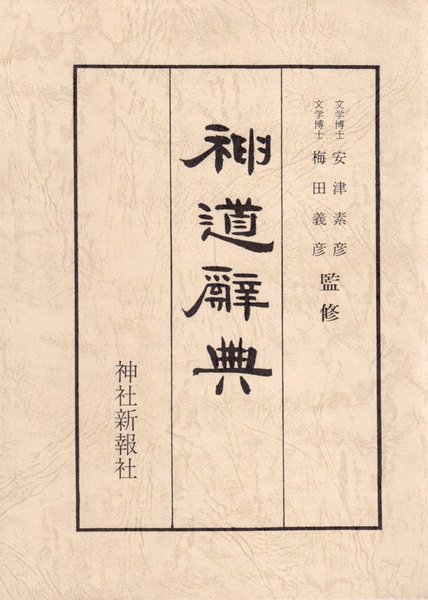 文学博士 安津素彦
文学博士 梅田義彦
監修
神道辭典
神社新報社